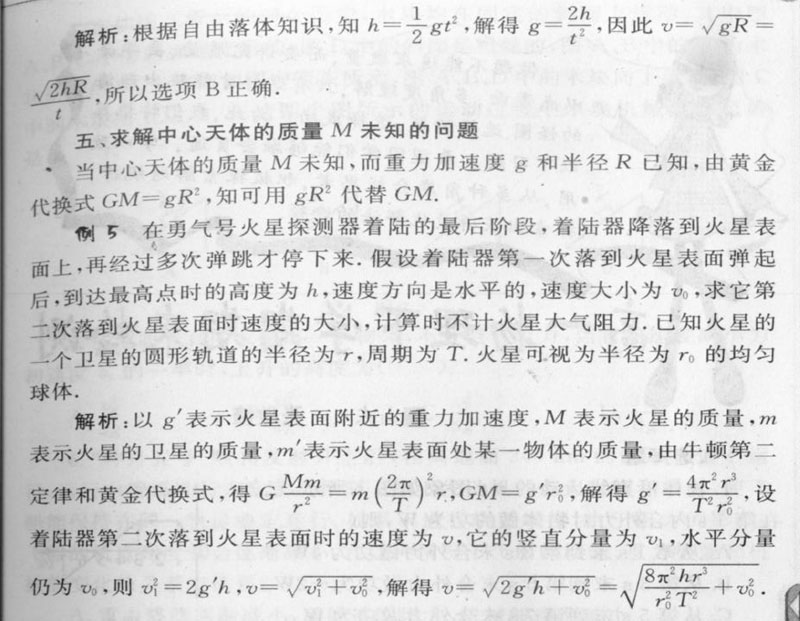 解析:根据自由落体知识,知 h=1/2 gt²,解得 g=2h/t²,因此 v=√gR=
√2hR/t,所以选项 B 正确.
五、求解中心天体的质量 M 未知的问题
当中心天体的质量 M 未知,而重力加速度 g 和半径 R 已知,由黄金
代换式 GM=gR²,知可用 gR² 代替 GM.
例 5 在勇气号火星探测器着陆的最后阶段,着陆器降落到火星表
面上,再经过多次弹跳才停下来. 假设着陆器第一次落到火星表面弹起
后,到达最高点时的高度为 h,速度方向是水平的,速度大小为 v₀,求它第
二次落到火星表面时速度的大小,计算时不计火星大气阻力. 已知火星的
一个卫星的圆形轨道的半径为 r,周期为 T. 火星可视为半径为 r₀ 的均匀
球体.
解析:以 g′表示火星表面附近的重力加速度,M 表示火星的质量,m
表示火星的卫星的质量,m′表示火星表面处某一物体的质量,由牛顿第二
定律和黄金代换式,得 G Mm/r² = m(2π/T)²r,GM=g′r₀²,解得 g′=4π²r³/T²r₀²,设
着陆器第二次落到火星表面时的速度为 v,它的竖直分量为 v₁,水平分量
仍为 v₀,则 v₁²=2g′h,v=√v₁²+v₀²,解得 v=√2g′h+v₀²=√8π²hr³/r₀²T²+v₀².